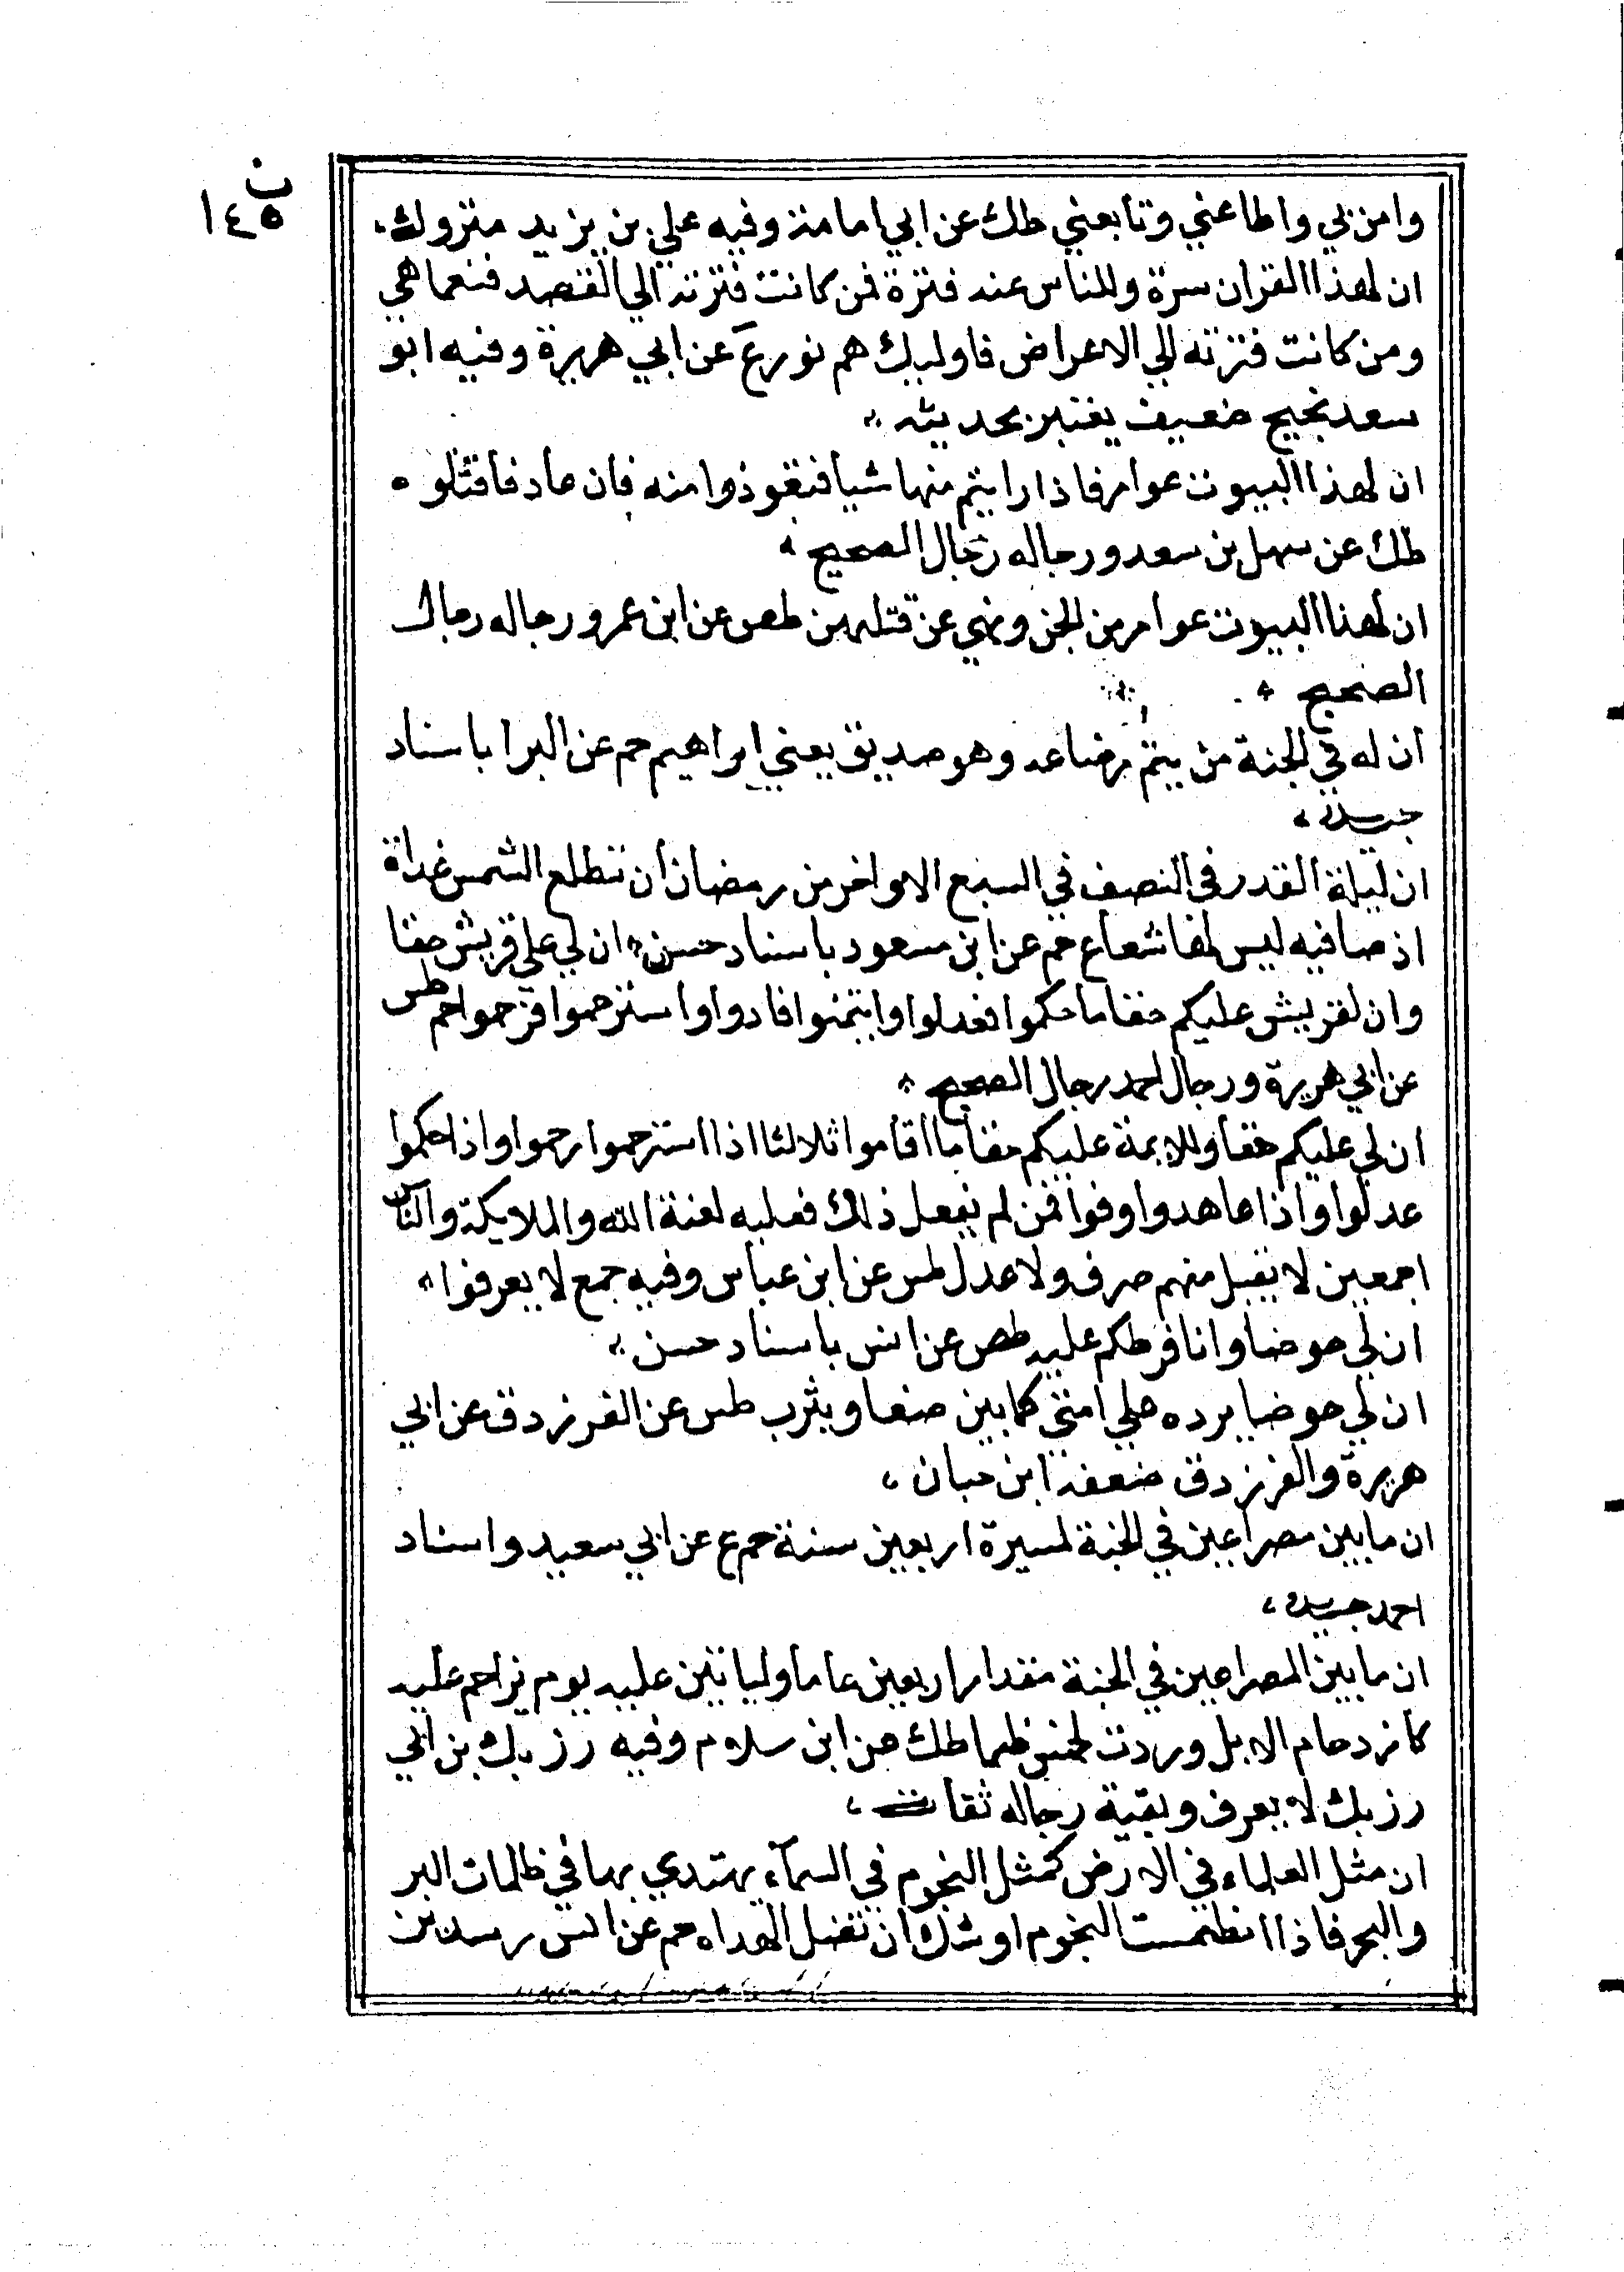 ن
١٤٥
وامن بي واطاعني وتابعني طك عن ابي امامة وفيه علي بن يزيد متروك
ان لهذا القران سرة وللناس عنه فترة فمن كانت فترته الي القصد فنعما هي
ومن كانت فترته الي الاعراض فاوليك هم بور ع عن ابي هريرة وفيه ابو
سعد نجيح ضعيف يعتبر بحديثه
ان لهذا البيوت عوامر فاذا رايتم منها شيا فتعوذوا منه فان عاد فاقتلوه
طك عن سهل بن سعد ورجاله رجال الصحيح
ان لهذا البيوت عوامر من الجن ونهي عن قتلهن طص عن ابن عمر ورجاله رجال
الصحيح
ان له في الجنة من يتم رضاعه وهو صديق يعني ابراهيم حم عن البرا باسناد
جيد
ان ليلة القدر في النصف في السبع الاواخر من رمضان ان تطلع الشمس غداة
اذ صافيه ليس لها شعاع حم عن ابن مسعود باسناد حسن ان لي علي قريش حقا
وان لقريش عليكم حقا ما حكموا فعدلوا وايتمنوا فادوا واسترحموا فرحموا حم طس
عن ابي هريرة ورجال احمد رجال الصحيح
ان لي عليكم حقا وللايمة عليكم حقا ما اقاموا ثلاثا اذا استرحموا رحموا واذا حكموا
عدلوا واذا عاهدوا وفوا فمن لم يفعل ذلك فعليه لعنة الله والملايكة والناس
اجمعين لا يقبل منهم صرف ولا عدل طس عن ابن عباس وفيه جمع لا يعرفوا
ان لي حوضا وانا فرطكم عليه طص عن انس باسناد حسن
ان لي حوضا يرده علي امتي كما بين صنعا ويثرب طس عن الفرزدق عن ابي
هريرة والفرزدق ضعفه ابن حبان
ان ما بين مصراعين في الجنة لمسيرة اربعين سنة حم ع عن ابي سعيد واسناد
احمد جيد
ان ما بين المصراعين في الجنة مقدار اربعين عاما ولياتين عليه يوم يزاحم عليه
كازدحام الابل وردت لخمس ظما طك عن ابن سلام وفيه رزيك بن ابي
رزيك لا يعرف وبقية رجاله ثقات
ان مثل العلماء في الارض كمثل النجوم في السمآء يهتدي بها في ظلمات البر
والبحر فاذا انطمست النجوم اوشك ان تضل الهداه حم عن انس رسدين